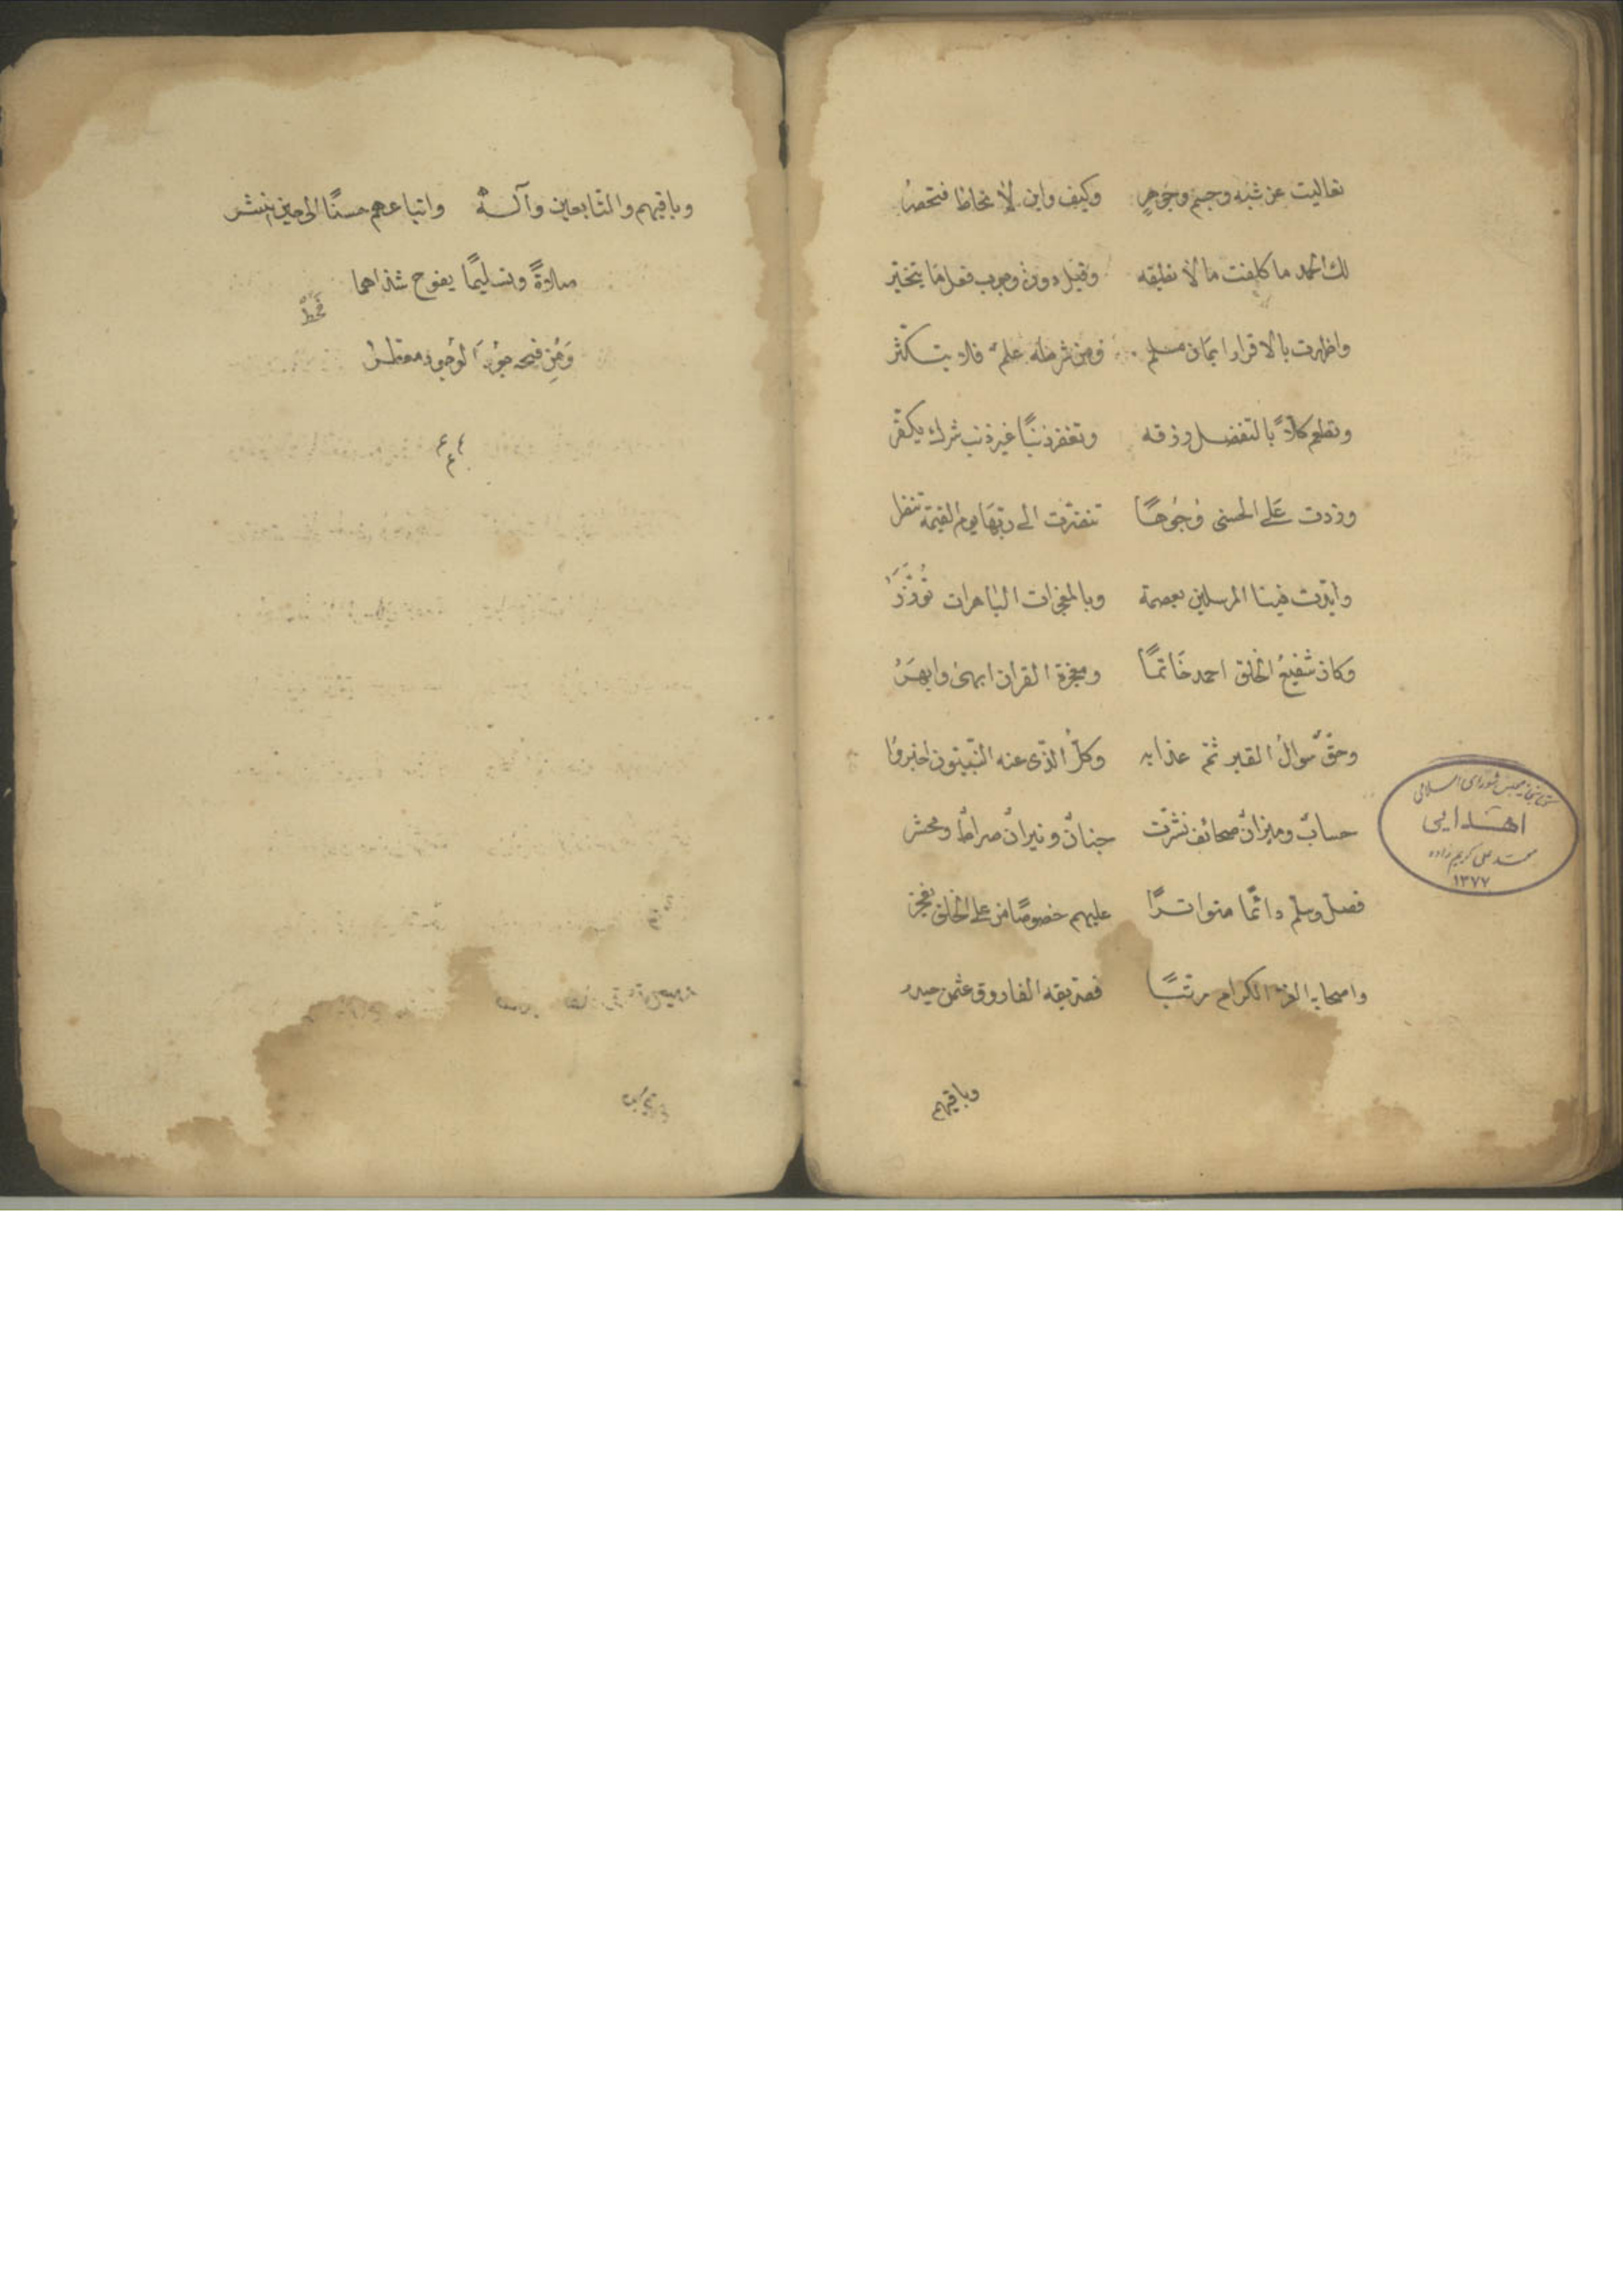 تعاليت عن شبه وجسم وجوهرٍ وكيف واين لا تحاط فتحصرُ
لك الحمد ما كلفت ما لا نطيقه وقيل دون وجوب فعل ما يتخير
واظهرت بالاقرار ايمان مسلم ومن شرطه علم فلا يتكثر
وتطعم كلاًّ بالتفضل رزقه وتغفر ذنبًا غير ذنب شرك يكفر
وزدت عَلى الحسنى وُجُوهًا تنضرت الى ربّهَا يوم القيمة تنظر
وايّدت فينا المرسلين بعصمة وبالمعجزات الباهرات
وكان شفيعُ الخلق احمد خَاتمًا ومعجزة القران ابهى وابهرُ
وحقّ سوالُ القبر ثم عذابه وكلُّ الّذى عنه النّبيّون اخبروا
حسابٌ وميزانٌ صحائف نشرت جنانٌ ونيرانٌ صراطٌ ومحشر
فصلّ وسلم دائمًا متواترًا عليهم خصوصًا من على الخلق يفخر
واصحابه الغر الكرام مرتبًا فصديقه الفاروق عثمن حيدر
وباقيهم
كتابخانه مجلس شورای اسلامی
اهدایی
محمد علی کریم زاده
١٣٧٧
وباقيهم والتّابعين وآله واتباعهم حسنًا الى حين ننشر
صلاةً وتسليمًا يفوح شذاهما
وَمِن فيحه الوجود معطر